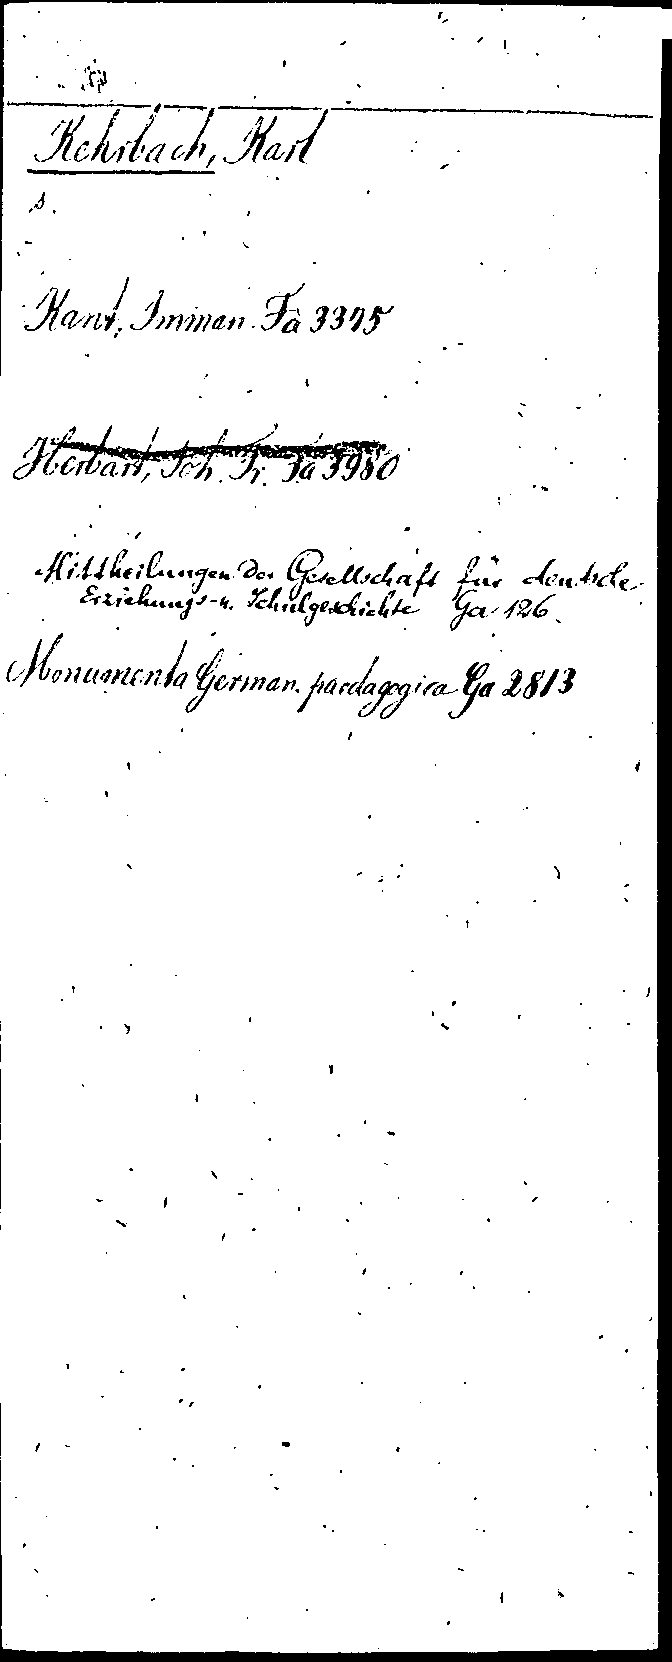 Kehrbach, Karl
s.
Kant, Imman. Fa 3345
Herbart, Joh. Fr. Fa 3980
Mittheilungen der Gesellschaft für deutsche
Erziehungs- u. Schulgeschichte Ga 126.
Monumenta German. paedagogica Ga 2813